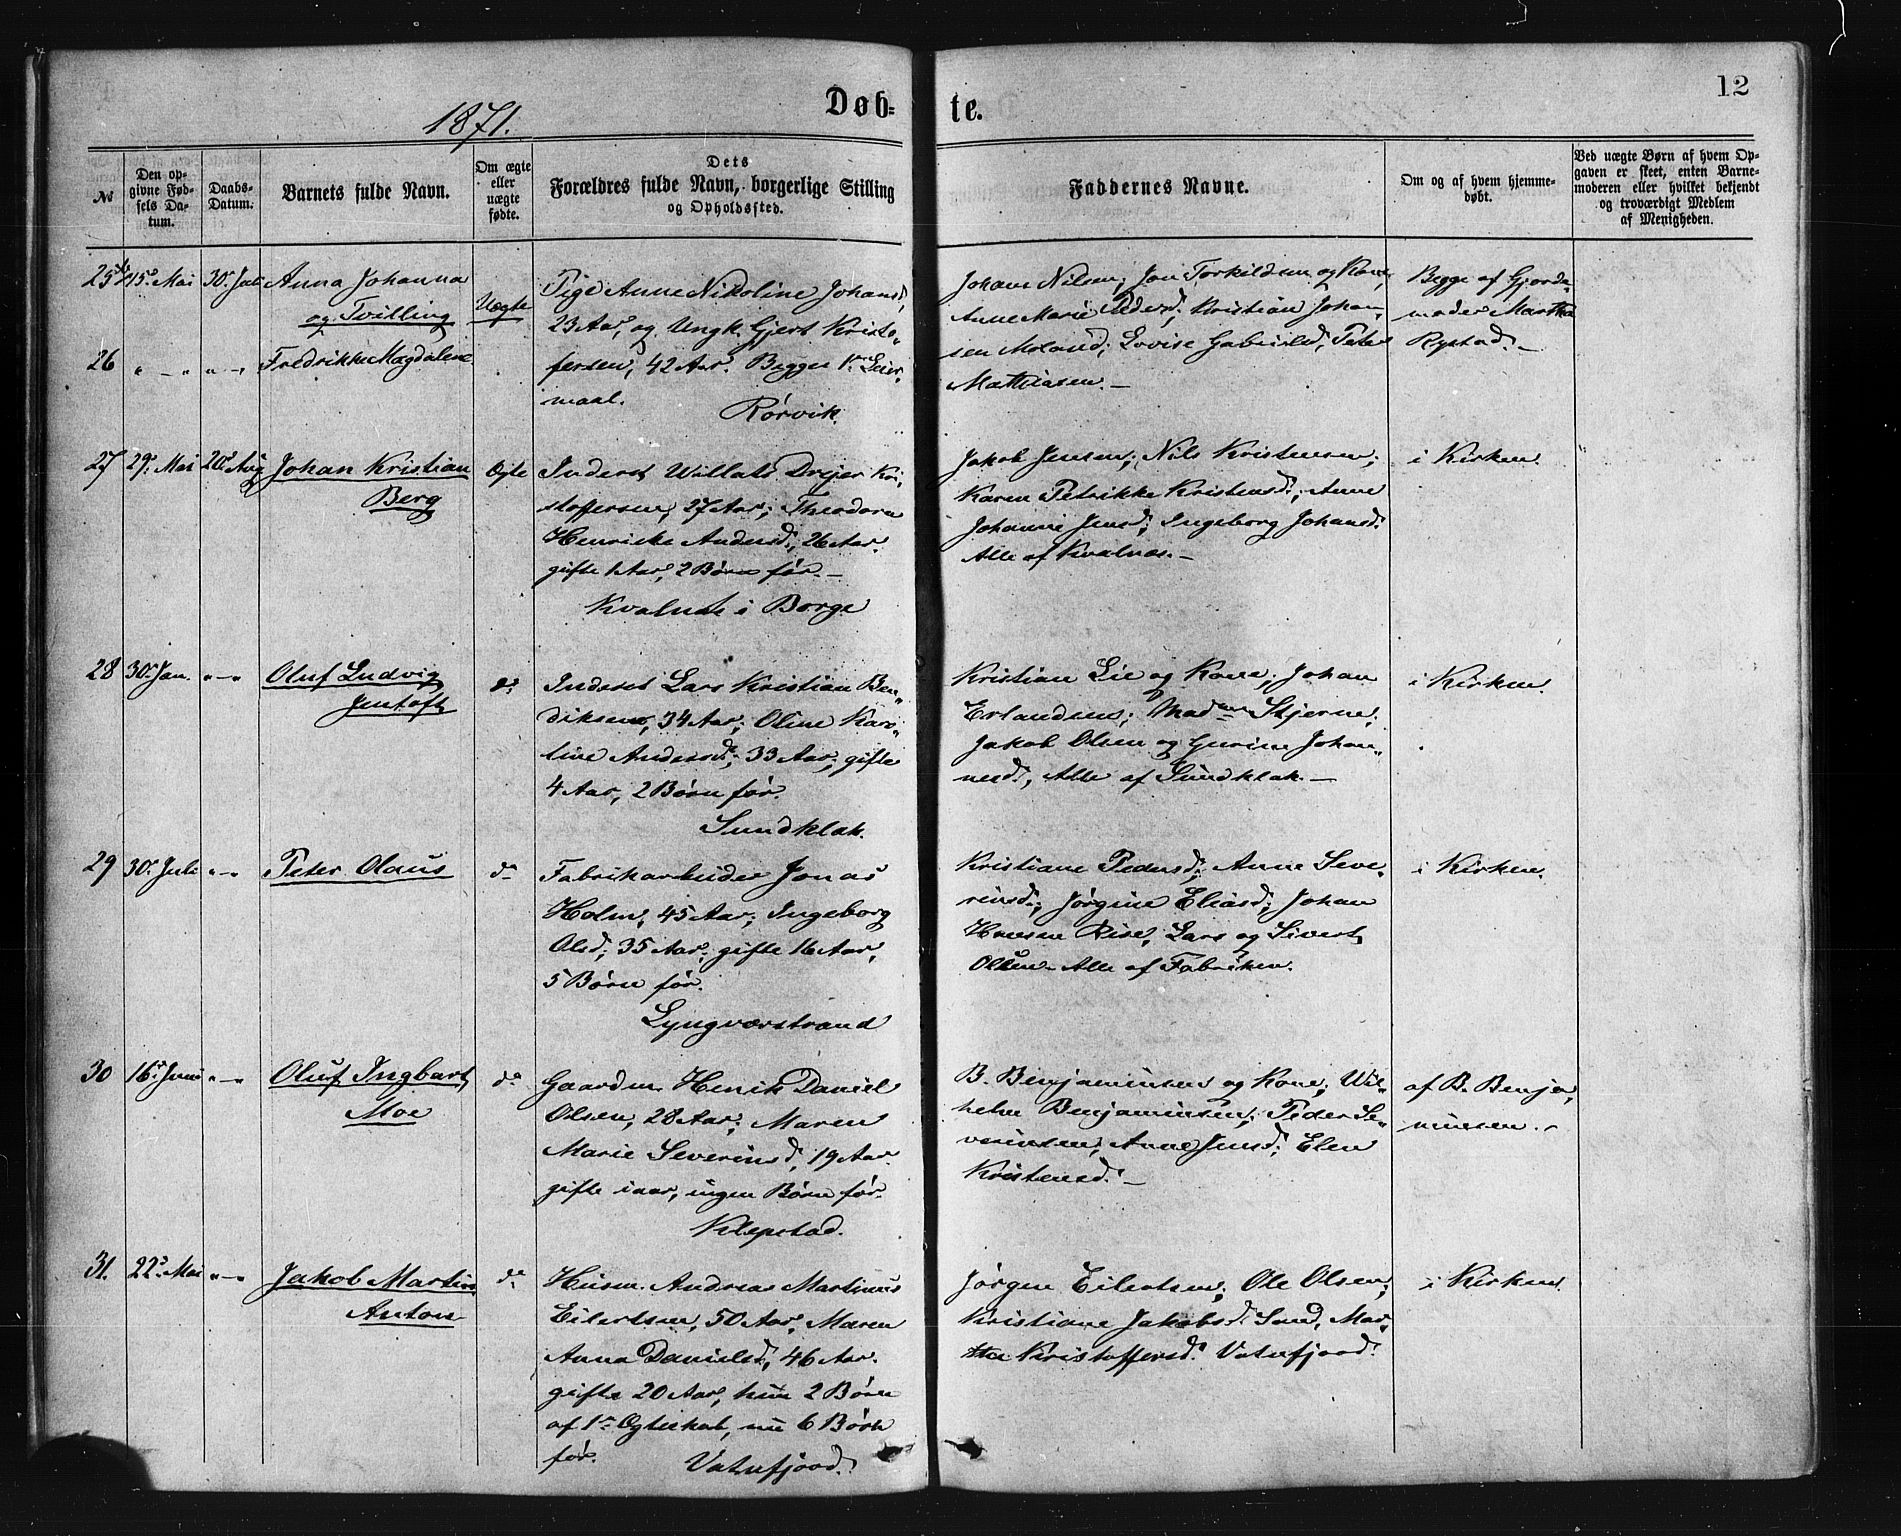 12
1871.
Døb-
te.
№
Den op-
givne Fød-
sels Da-
tum.
Daabs-
Datum.
Barnets fulde Navn.
Om ægte
eller
uægte
fødte.
Dets
Forældres fulde Navn, borgerlige Stilling
og Opholdssted.
Faddernes Navne.
Om og af hvem hjemme-
døbt.
Ved uægte Børn af hvem Op-
gaven er skeet, enten Barne-
moderen eller hvilket bekjendt
og troværdigt Medlem
af Menigheden.
25
15. Mai
30. Juli
Anna Johanna
og Tvilling
Uægte
Pige Anne Nikoline Johansd,
23 Aar, og Ungk. Gjert Kristo-
fersen, 42 Aar. Begges 1ste Leier-
maal.
Rørvik.
Johans Nilsen; Jon Torkildsen og Kone,
Anne Marie Pedersd; Kristian Johan-
sen Moland; Lovise Gabrielsd, Peter
Mathiasen.—
Begge af Gjorde-
moder Martha
Rystad.—
26
" — " " — "
Fredrikke Magdalene
27
29. Mai
20. Aug
Johan Kristian
Berg
Ægte
Inderst Willats Drejer Kri-
stoffersen, 27 Aar; Theodora
Henrikke Andersd, 26 Aar.
gifte 1 Aar, 2 Børn før.—
Kvalnæs i Borge
Jakob Jensen; Nils Kristensen;
Karen Petrikke Kristensd; Anne
Johanne Jensd; Ingeborg Johansd.
Alle af Kvalnæs.—
i Kirken.
28
30. Jan.
" — "
Oluf Ludvig
Jentoft
do
Inderst Lars Kristian Ben-
diksen, 34 Aar; Oline Karo-
line Andersd; 33 Aar; gifte
4 Aar, 2 Børn før.
Sundklak.
Kristian Lie og Kone; Johan
Erlandsen; Madme Stjerne;
Jakob Olsen og Gurine Johan-
nesd, Alle af Sundklak.—
i Kirken.
29
30. Juli
" — "
Peter Olaus
do
Fabrikarbeider Jonas
Holm, 45 Aar; Ingeborg
Olsd; 35 Aar, gifte 16 Aar,
5 Børn før.
Lyngværstrand
Kristiane Pedersd; Anne Seve-
rinsd; Jørgine Eliasd; Johan
Hansen Rise; Lars og Sivert
Olsen. Alle af Fabriken.
i Kirken.
30
16. Juni
" — "
Oluf Ingbart
Moe
do
Gaardm. Henik Daniel
Olsen, 28 Aar; Maren
Marie Severinsd, 19 Aar.
gifte iaar, ingen Børn før.
Klepstad.
B. Benjaminsen og Kone; Wil-
helm Benjaminsen; Peder Se-
verinsen; Anne Jensd; Elen
Kristensd.—
af B. Benja-
minsen.—
31.
22. Mai
" — "
Jakob Martin
Anton
do
Husm. Andreas Martinus
Eilertsen, 50 Aar, Maren
Anna Danielsd, 46 Aar.
gifte 20 Aar, hun 2 Børn
af 1ste Ægteskab, nu 6 Børn
før.
Vatnfjord.
Jørgen Eilertsen; Ole Olsen;
Kristiane Jakobsd. Sund, Mar-
tha Kristoffersd. Vatnfjord.
i Kirken.